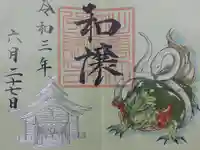 和譲
令和三年
六月二十七日